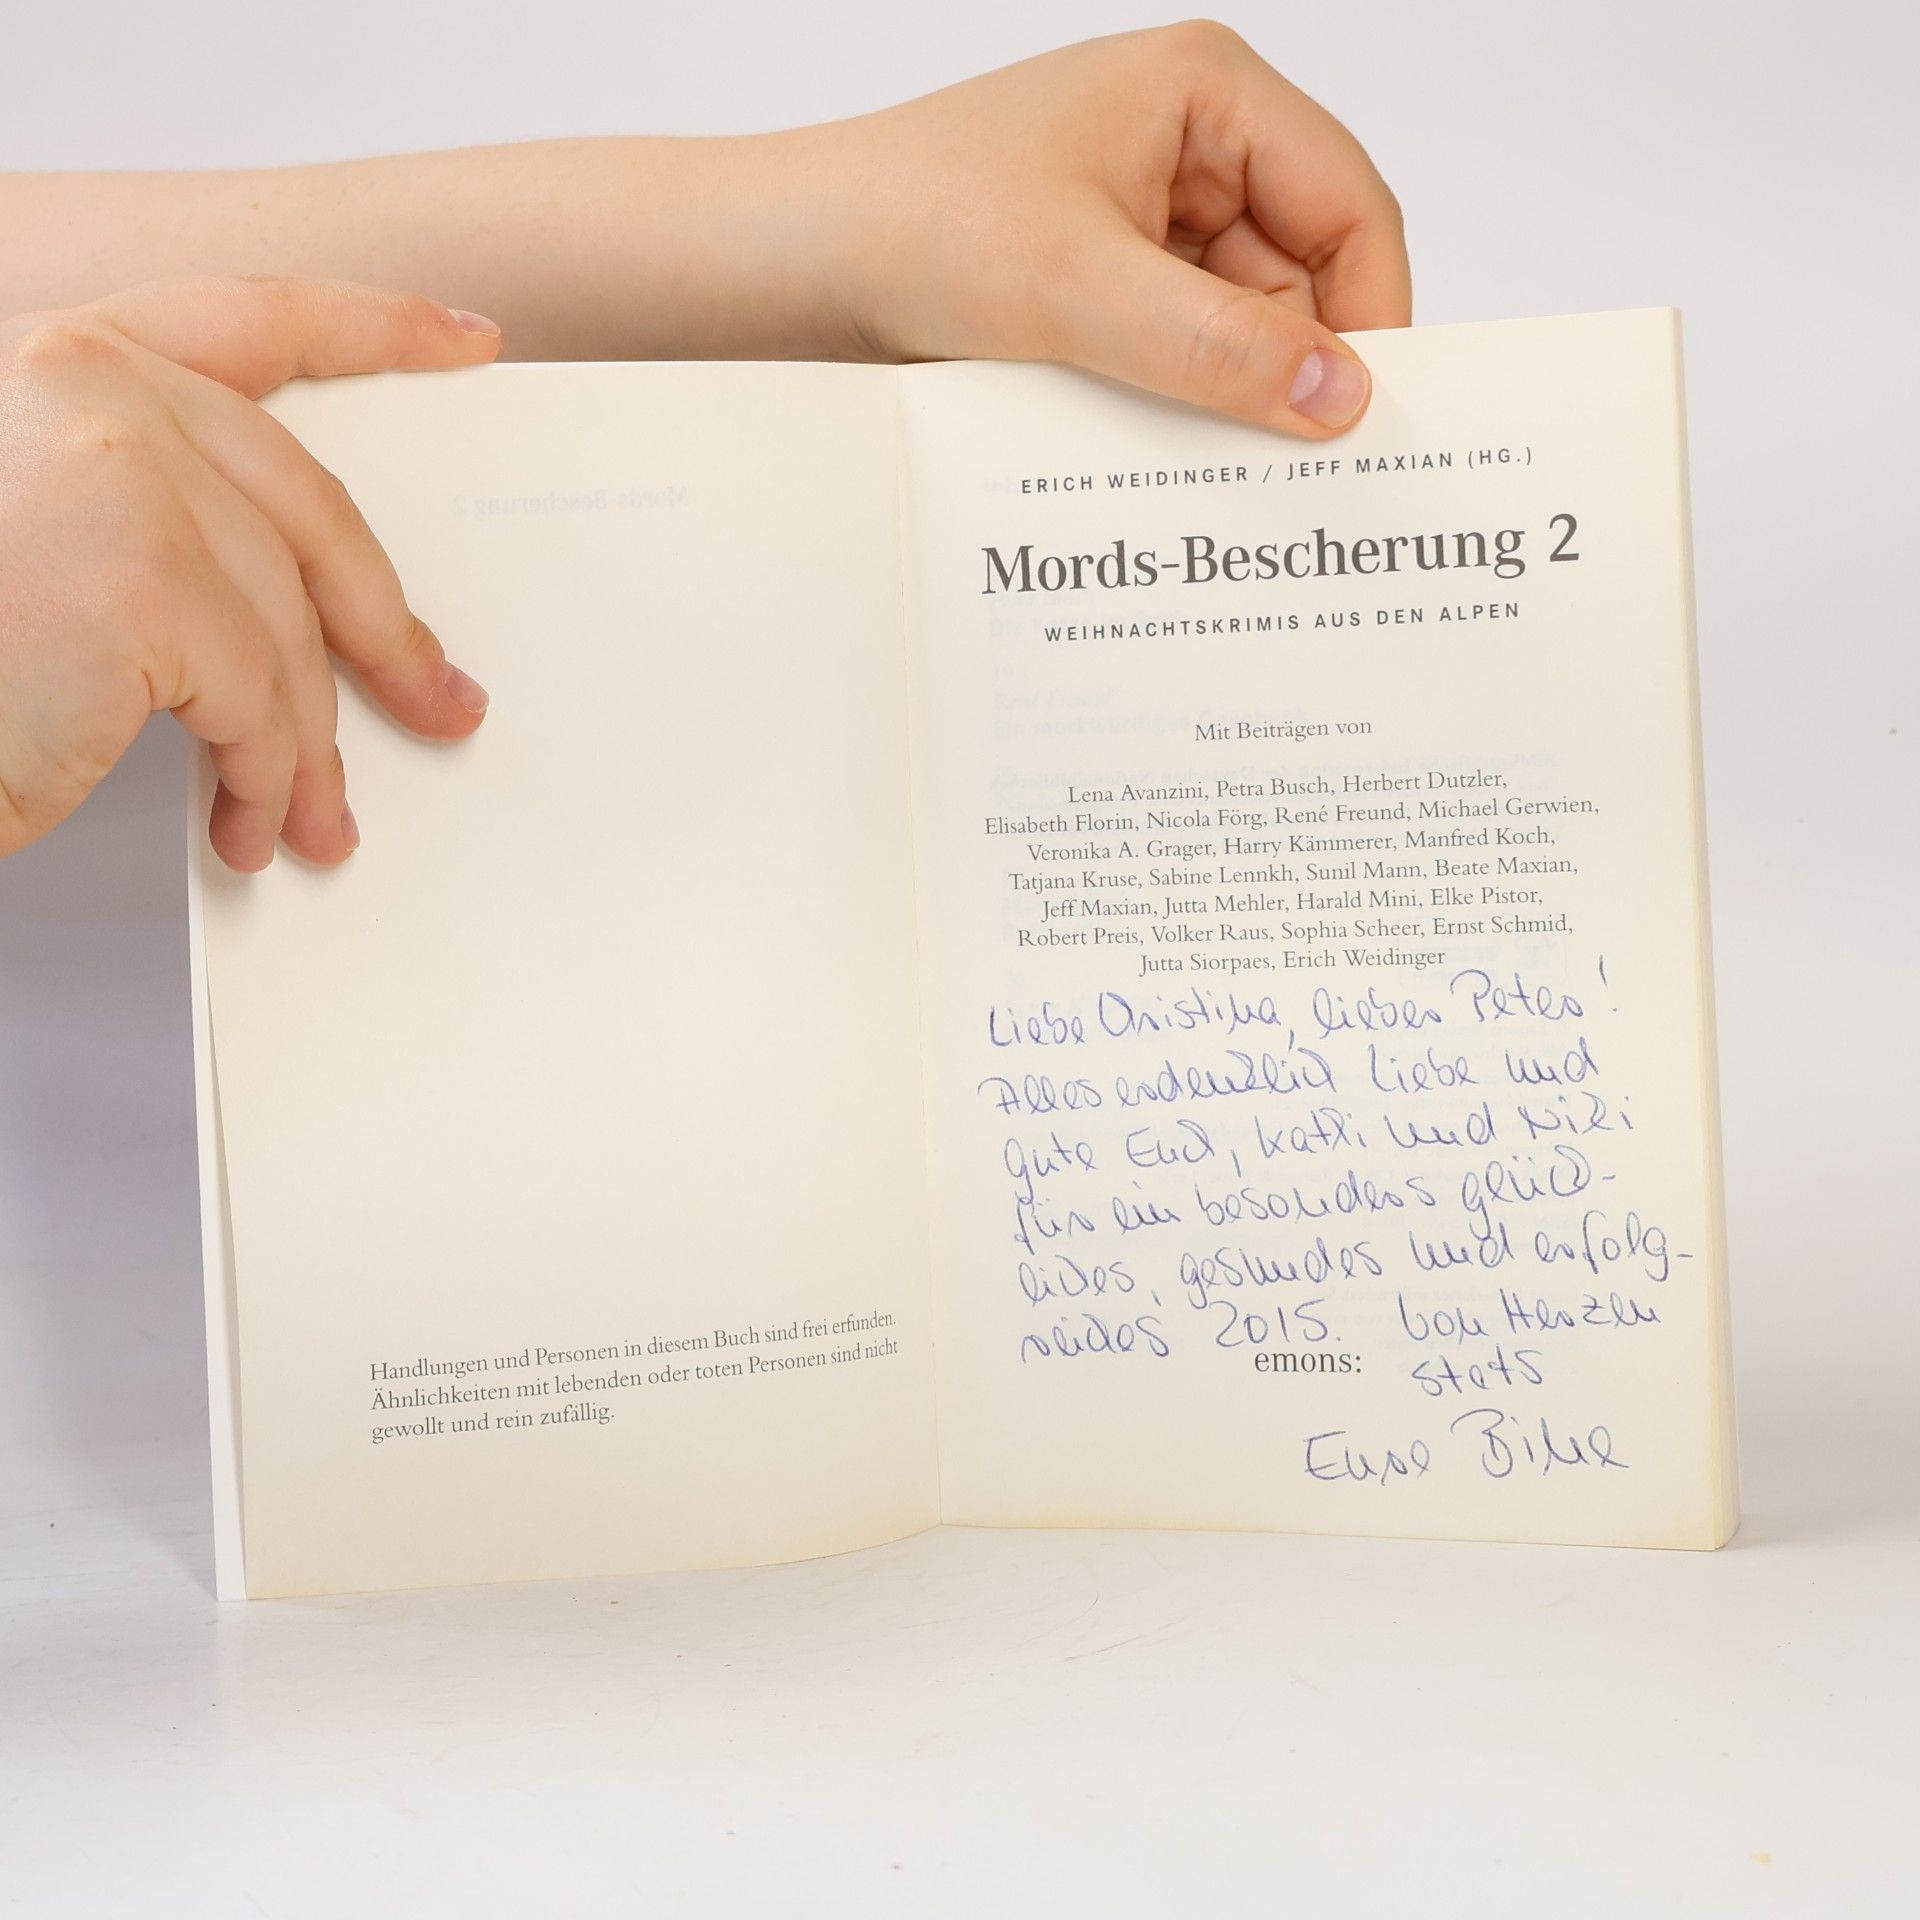 Mords-Bescherung 2
Handlungen und Personen in diesem Buch sind frei erfunden.
Ähnlichkeiten mit lebenden oder toten Personen sind nicht
gewollt und rein zufällig.
ERICH WEIDINGER / JEFF MAXIAN (HG.)
Mords-Bescherung 2
WEIHNACHTSKRIMIS AUS DEN ALPEN
Mit Beiträgen von
Lena Avanzini, Petra Busch, Herbert Dutzler,
Elisabeth Florin, Nicola Förg, René Freund, Michael Gerwien,
Veronika A. Grager, Harry Kämmerer, Manfred Koch,
Tatjana Kruse, Sabine Lennkh, Sunil Mann, Beate Maxian,
Jeff Maxian, Jutta Mehler, Harald Mini, Elke Pistor,
Robert Preis, Volker Raus, Sophia Scheer, Ernst Schmid,
Jutta Siorpaes, Erich Weidinger
Liebe Christina, lieber Peter!
Alles erdenklich Liebe und
Gute Euch, Kathi und Niki
für ein besonders glück-
liches, gesundes und erfolg-
reiches 2015. Von Herzen
emons: stets
Eure